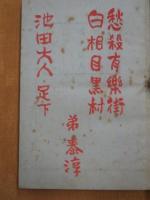 愁殺有樂街
白相目黑村
弟泰淳
池田大人 足下